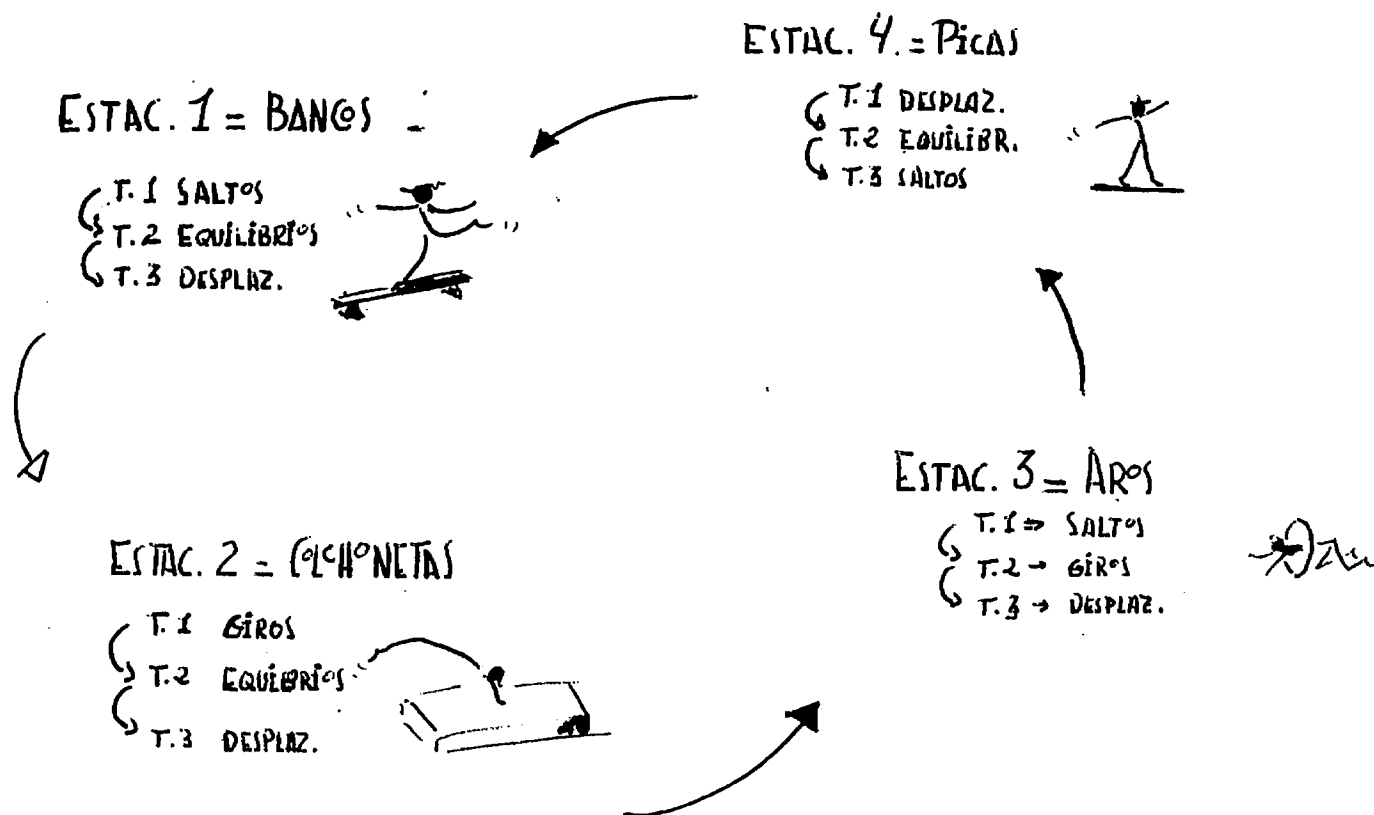 ESTAC. 1 = BANCOS
T.1 SALTOS
T.2 EQUILIBRIOS
T.3 DESPLAZ.
ESTAC. 2 = COLCHONETAS
T.1 GIROS
T.2 EQUILIBRIOS
T.3 DESPLAZ.
ESTAC. 3 = AROS
T.1 ⇒ SALTOS
T.2 → GIROS
T.3 → DESPLAZ.
ESTAC. 4. = PICAS
T.1 DESPLAZ.
T.2 EQUILIBR.
T.3 SALTOS